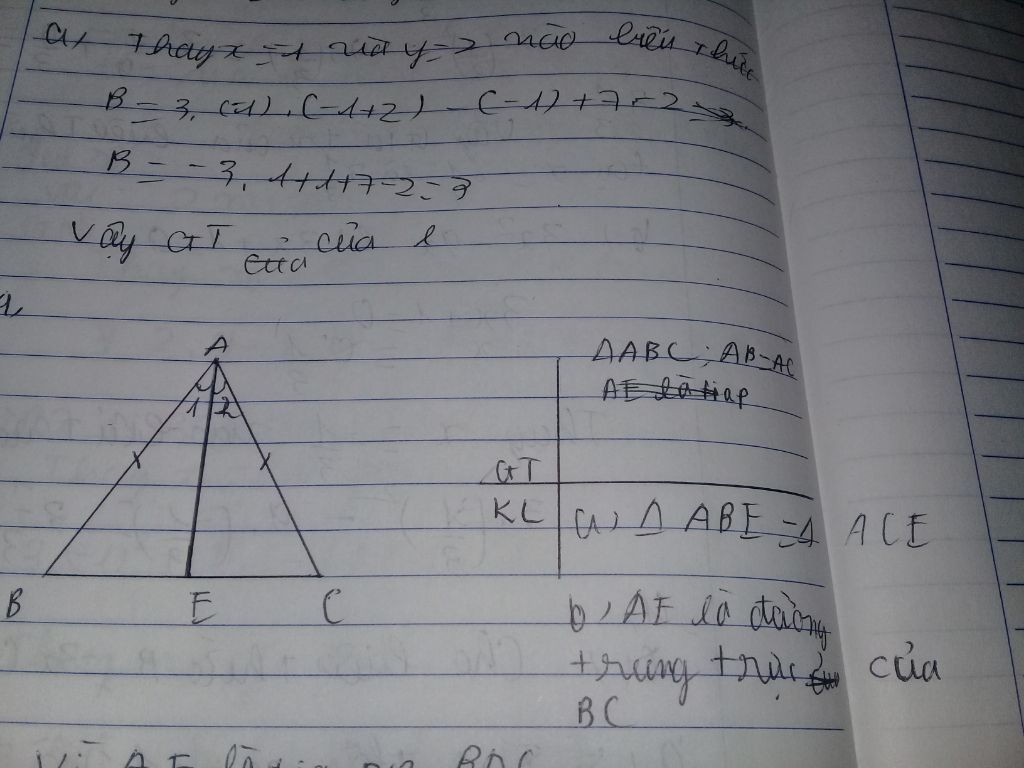 a, Thay x = -1 và y = 2 vào biểu thức
B = 3. (-1). (-1+2) - (-1) + 7 - 2
B = -3. 1+1+7-2=3
Vậy GT của
A
1 2
B E C
ΔABC; AB=AC
AE là tia p
GT
KL
a, Δ ABE = Δ ACE
b, AE là đường
trung trực của
BC
Vì AE là tia BAC